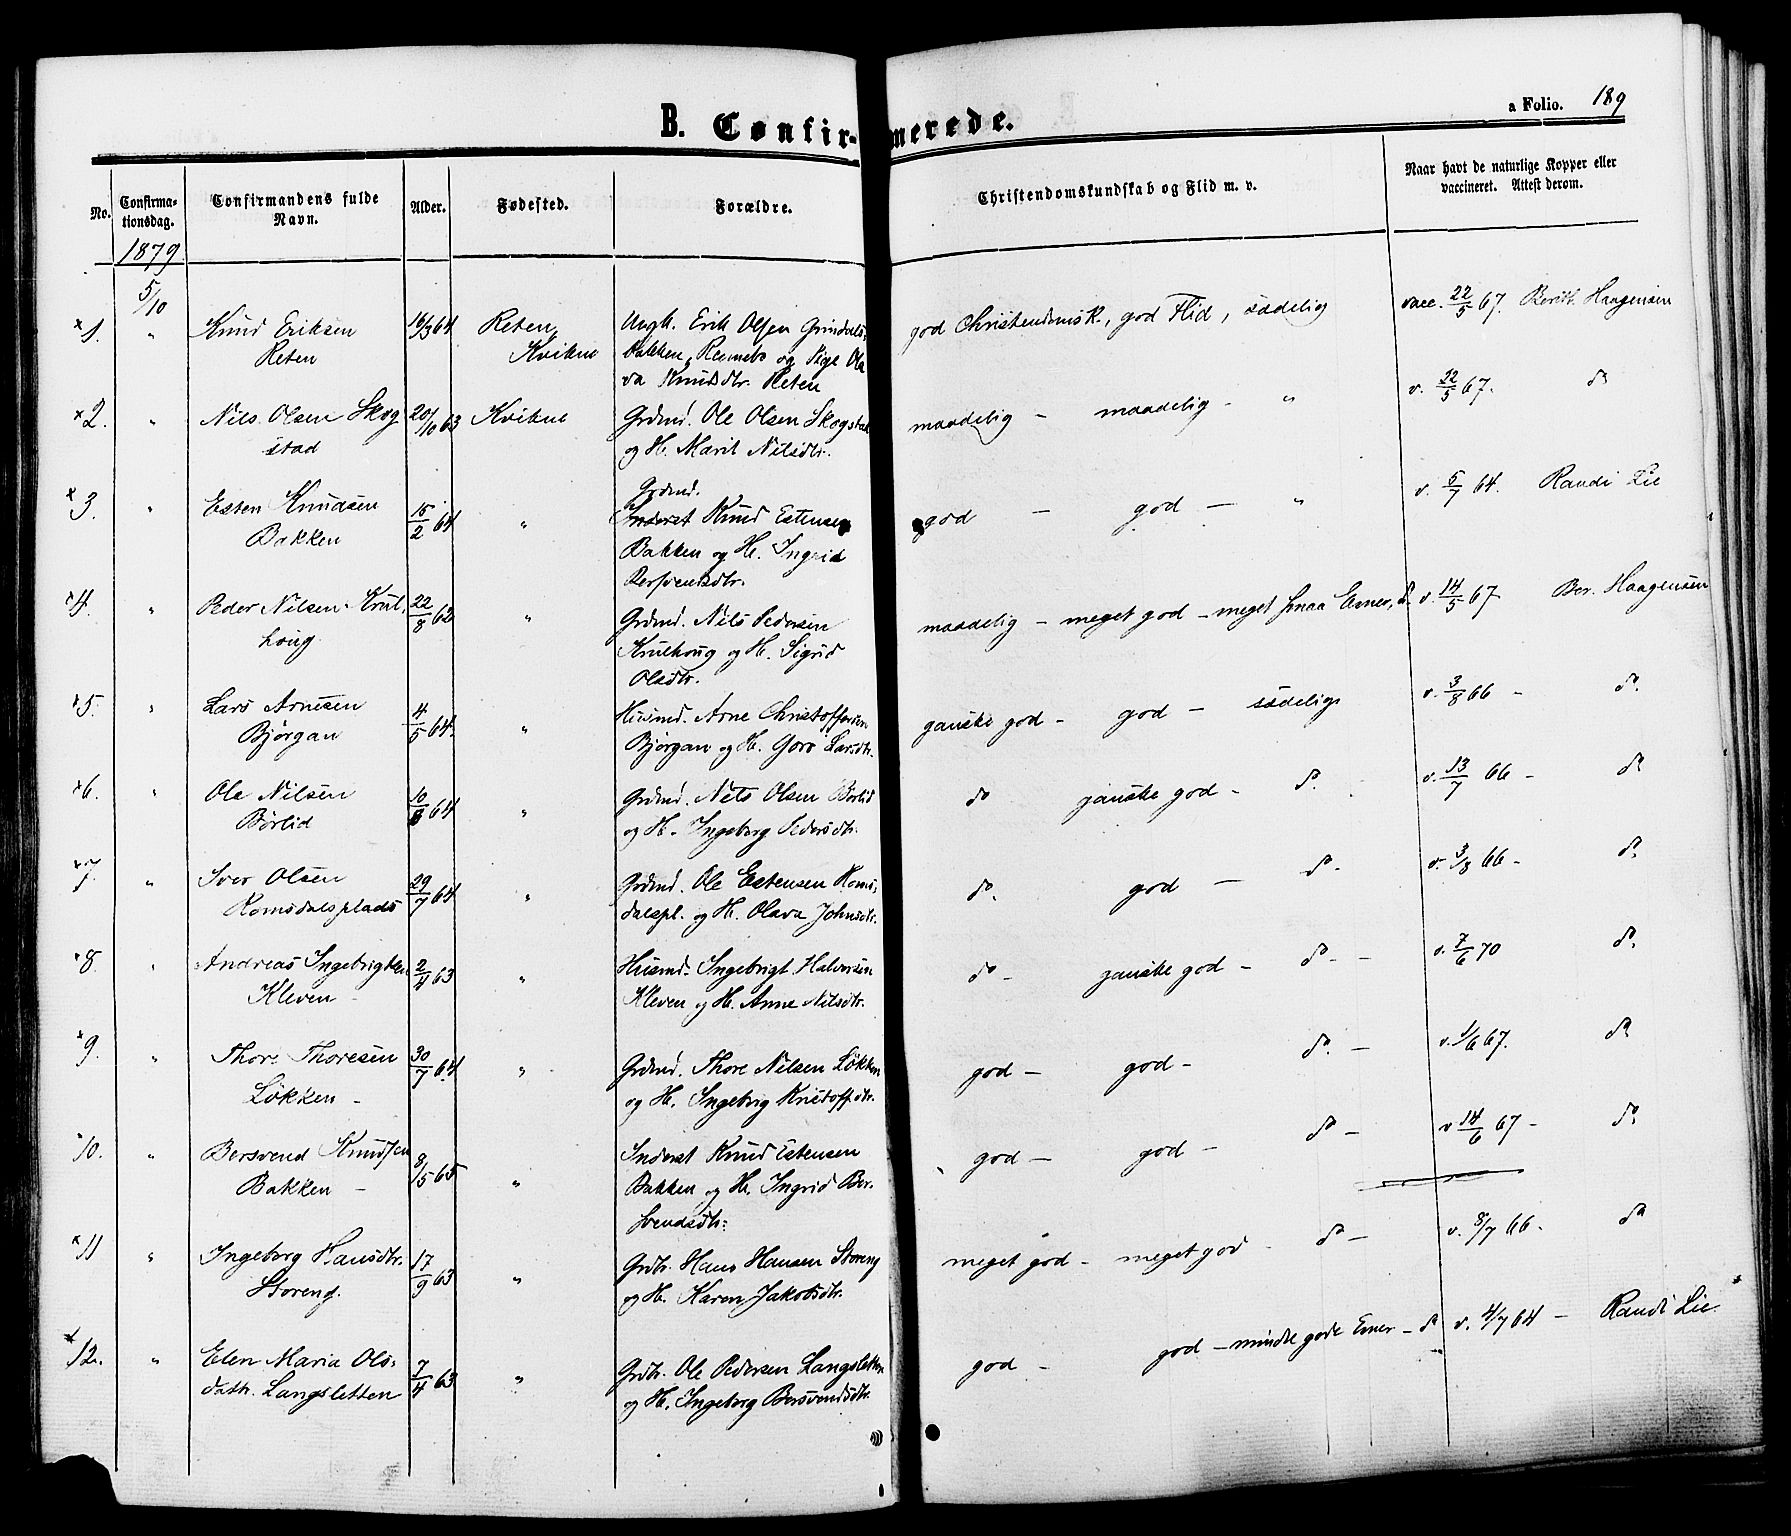 B. Confir-merede.
a Folio. 189
No.
Confirma-
tionsdag.
Confirmandens fulde
Navn.
Alder.
Fødested.
Forældre.
Christendomskundskab og Flid m. v.
Naar havt de naturlige Kopper eller
vaccineret. Attest derom.
1879
5/10
1. " Knud Eriksen 16/3 64 Reten, Ungk. Erik Olsen Grindals- god Christendomsk., god Flid, sædelig vacc. 22/5 67. Berit Haagensen
Reten Kvikne bakken, Rennebo og Pige Ola
va Knudsdtr. Reten
2. " Nils Olsen Skog 20/10 63 Kvikne Grdmd. Ole Olsen Skogstad maadelig - maadelig - " v. 22/5 67. do
stad og H. Marit Nilsdtr.
Grdmd.
3. " Esten Knudsen 15/2 64 " Inderst Knud Estensen god - god - " v. 5/7 64. Randi Lie
Bakken Bakken og H. Ingrid
Bersvendsdtr.
4. " Peder Nilsen Krul, 22/8 62 " Grdmd. Nils Pedersen maadelig - meget god - meget smaa Evner, do v. 14/5 67 Ber. Haagensen
houg. Krulhoug og H. Sigrid
Olsdtr.
5. " Lars Arnesen 4/5 64. " Husmd. Arne Christoffersen ganske god - god - sædelig v. 3/8 66 - do.
Bjørgan Bjørgan og H. Goro Larsdtr.
6. " Ole Nilsen 10/8 64 " Grdmd. Nels Olsen Børlid do ganske god - do. v. 13/7 66 - do
Børlid og H. Ingeborg Pedersdtr.
7. " Iver Olsen 29/7 64 " Grdmd. Ole Estensen Roms, do. god - do. v. 3/8 66 - do.
Romsdalsplads dalspl. og H. Olava Johnsdtr.
8. " Andreas Ingebrigtsen 2/4 63 " Husmd. Ingebrigt Halvorsen do - ganske god - do - v. 7/6 70 do.
Kleven - Kleven og H. Anne Nilsdtr.
9. " Thore Thoresen 30/7 64 " Grdmd. Thore Nilsen Løkken god - god - do. - v. 1/6 67. do
Løkken - og H. Ingebrig Kristoffdtr.
10. " Bersvend Knudsen 8/5 65 " Inderst Knud Estensen god - god - do - v 14/6 67 - do
Bakken - Bakken og H. Ingrid Ber-
svendsdtr.
11 " Ingeborg Hansdtr. 17/9 63 " Grdbr. Hans Hansen Storeng meget god - meget god - do - v. 8/7 66 - do
Storeng. og H. Karen Jakobsdtr.
12. " Elen Maria Ols- 7/4 63 " Grdbr. Ole Pedersen Langsletten god - god - mindre gode Evner - do v. 4/7 64 - Randi Lie
datr. Langsletten og H. Ingeborg Bersvendsdtr.